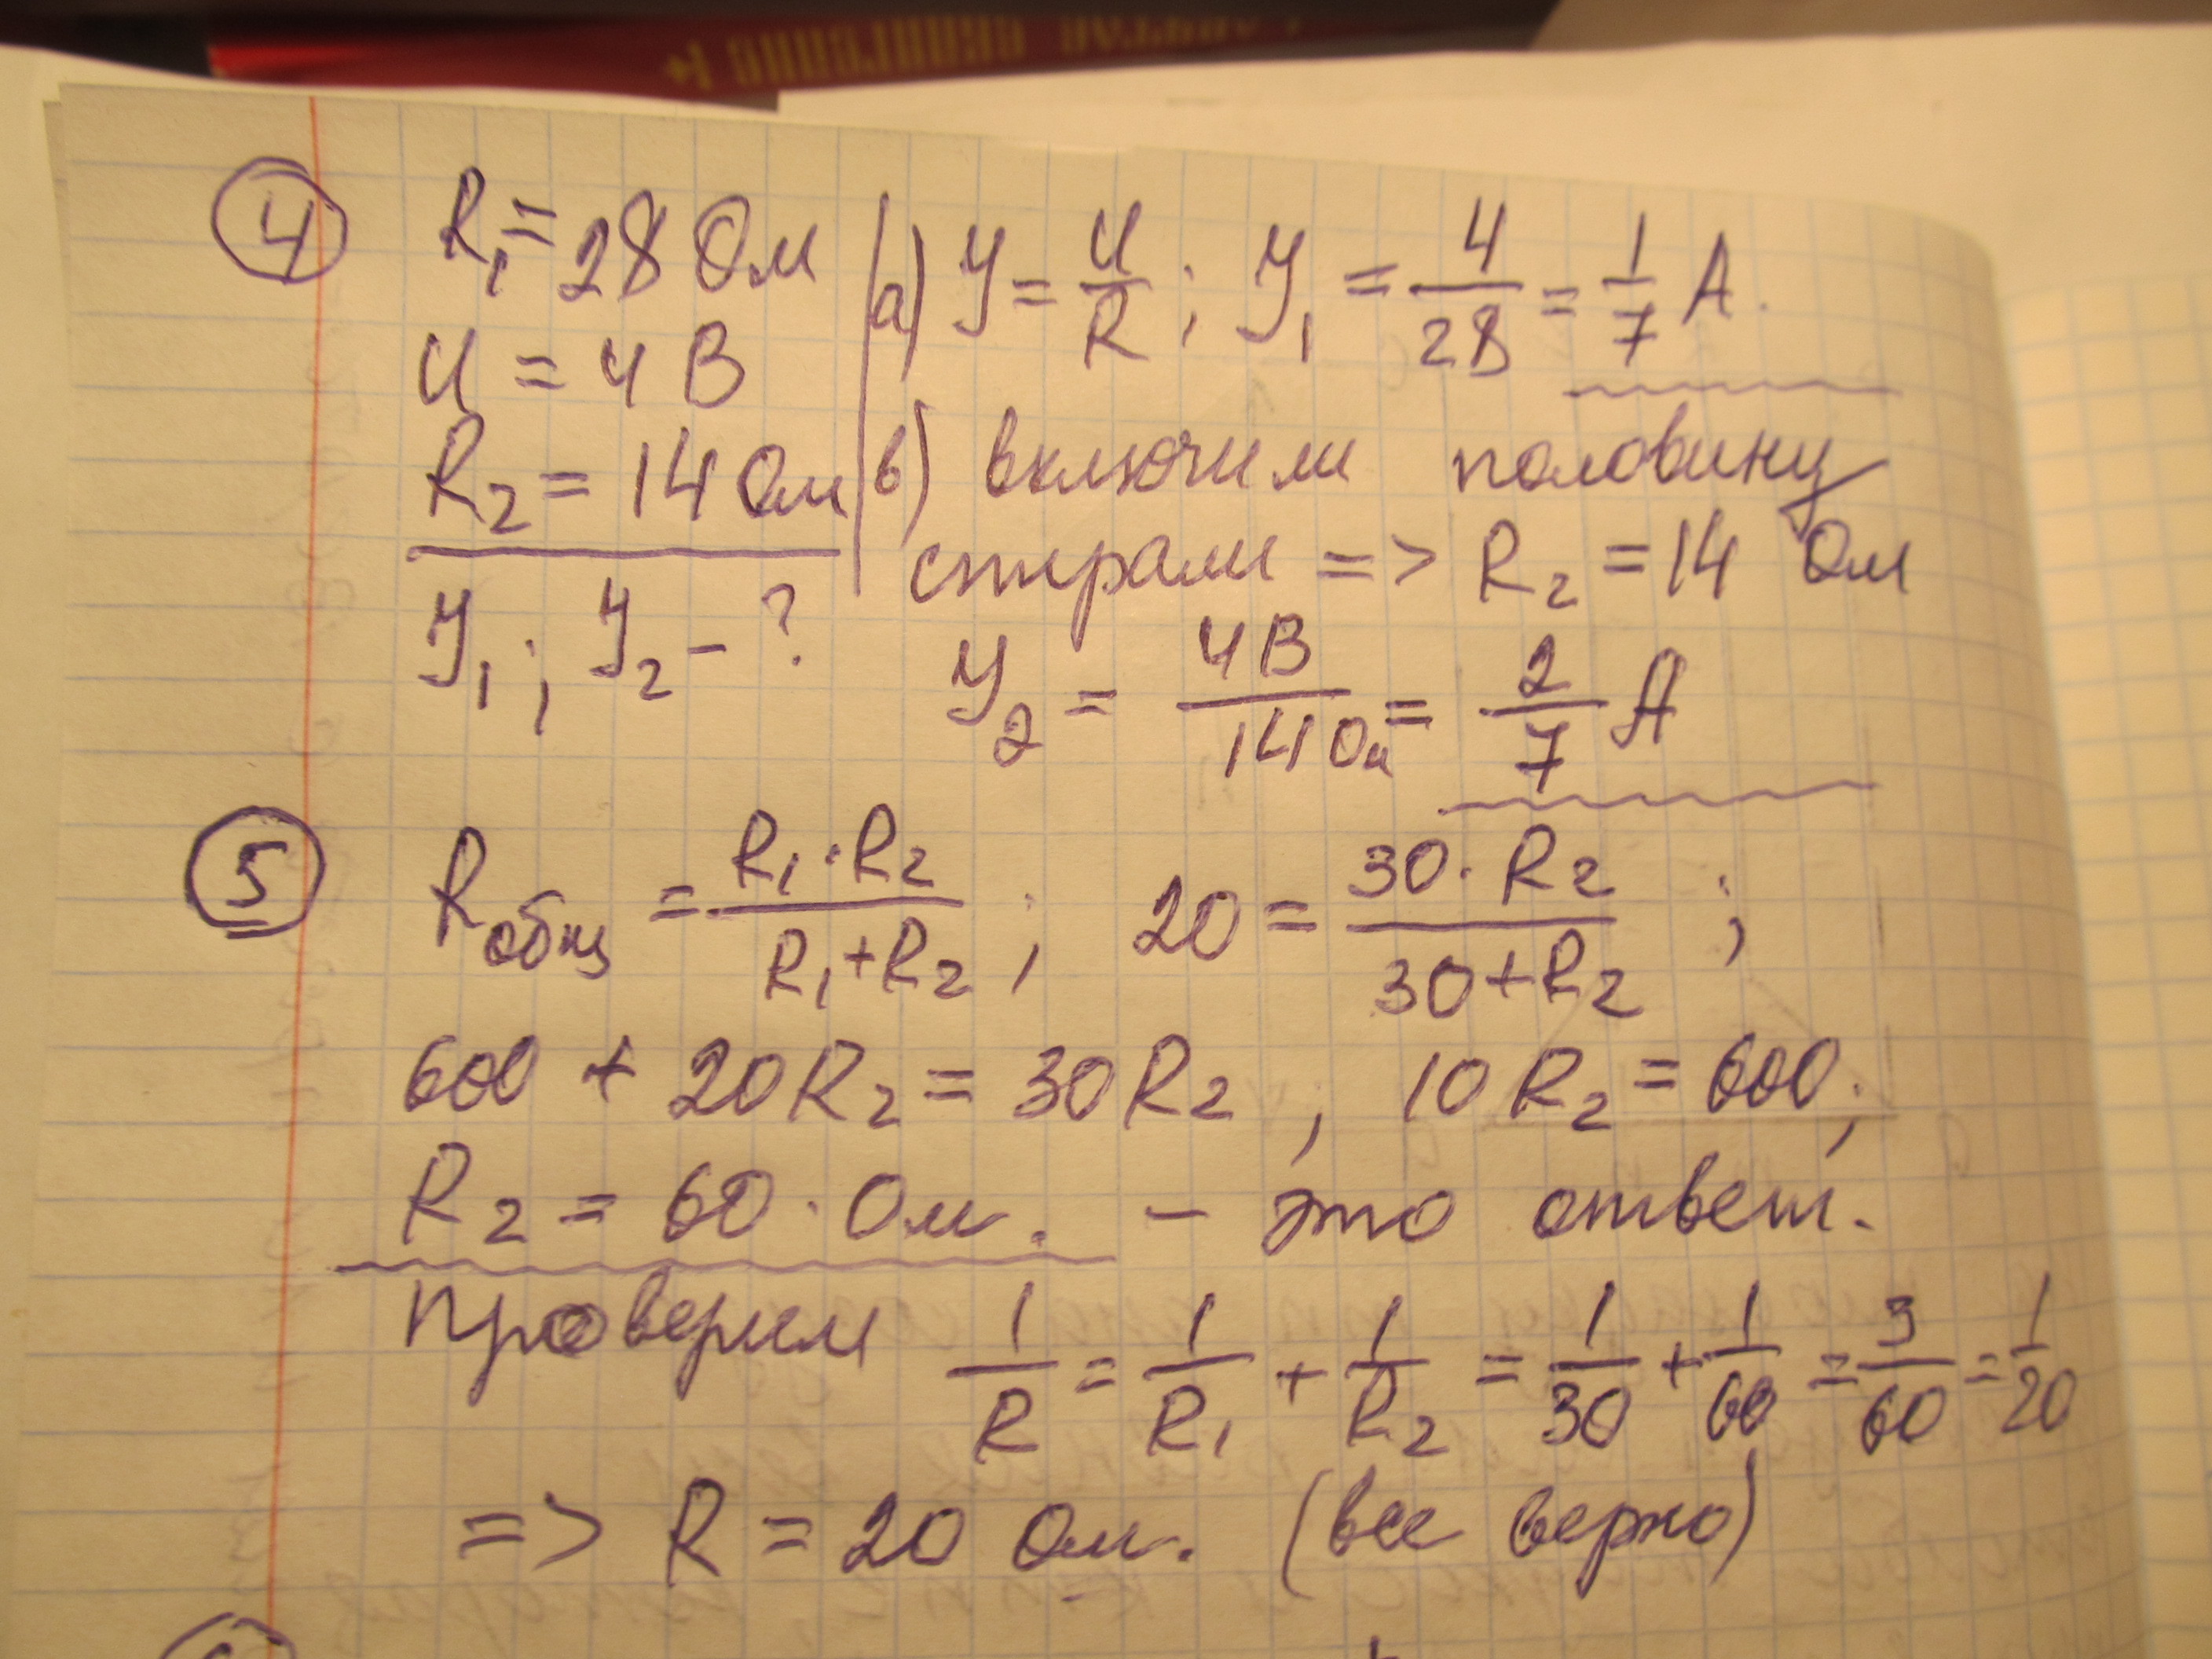 4
R₁ = 28 Ом
U = 4 В
R₂ = 14 Ом
У₁; У₂ - ?
а) У = U/R; У₁ = 4/28 = 1/7 А.
в) включили половину
спирали => R₂ = 14 Ом
У₂ = 4В/14Ом = 2/7 А
5
Rобщ = R₁·R₂/R₁+R₂; 20 = 30·R₂/30+R₂;
600 + 20R₂ = 30R₂, 10R₂ = 600;
R₂ = 60·Ом. - это ответ.
Проверим 1/R = 1/R₁ + 1/R₂ = 1/30 + 1/60 = 3/60 = 1/20
=> R = 20 Ом. (все верно)